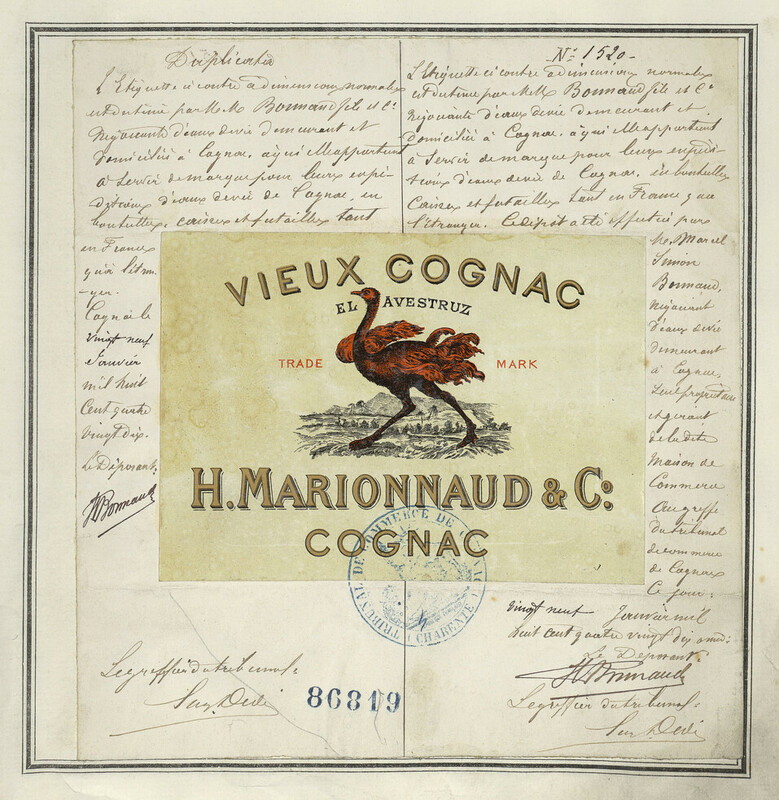 Duplicata
L'Etiquette ci contre a dimensions normales
est destiné par M.M. Bonnaud fils et Cie
Négociants d'eaux de vie demeurant et
domiciliés à Cognac, à qui elle appartient
à servir de marque pour leurs expé-
ditions d'eaux de vie de Cognac, en
bouteilles, caisses et futailles tant
en France
qu'à l'étran-
-ger.
Cognac le
vingt neuf
Janvier
mil huit
Cent quatre
vingt dix.
Le Déposant:
Bonnaud
Le greffier du tribunal:
Nº 1520-
L'Etiquette ci contre a dimensions normales
est destiné par M.M. Bonnaud fils et Cie
Négociants d'eaux de vie demeurant et
domiciliés à Cognac, à qui elle appartient
à servir de marque pour leurs expédi-
tions d'eaux de vie de Cognac, en bouteilles
Caisses et futailles tant en France que
l'étranger. Ce dépôt a été effectué par
Mr. Marcel
Simon
Bonnaud,
négociant
d'eaux de vie
demeurant
à Cognac,
seul propriétaire
et gérant
de la dite
Maison de
Commerce
Au greffe
du tribunal
de commerce
de Cognac
Ce jour:
vingt neuf Janvier mil
huit cent quatre vingt dix
Le Déposant
Bonnaud
Le greffier du tribunal:
VIEUX COGNAC
EL AVESTRUZ
TRADE MARK
H. MARIONNAUD & Cº
COGNAC
TRIBUNAL DE COMMERCE DE
CHARENTE
86819